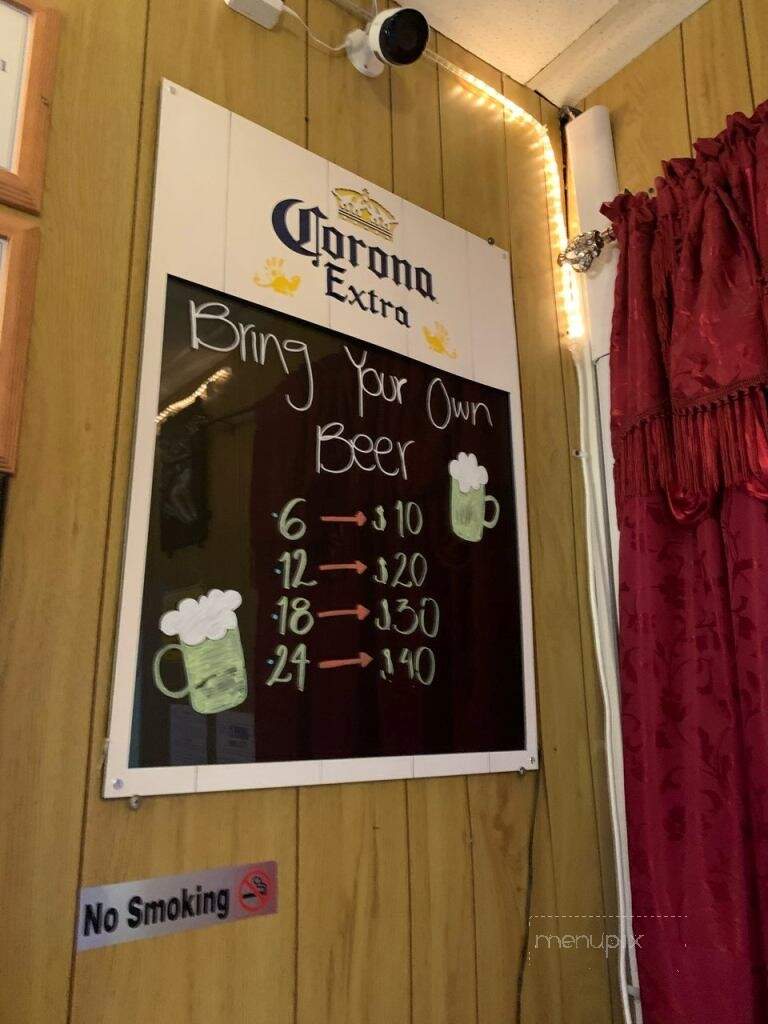 Corona
Extra
Bring Your Own
Beer
6 → $10
12 → $20
18 → $30
24 → $40
No Smoking
menupix